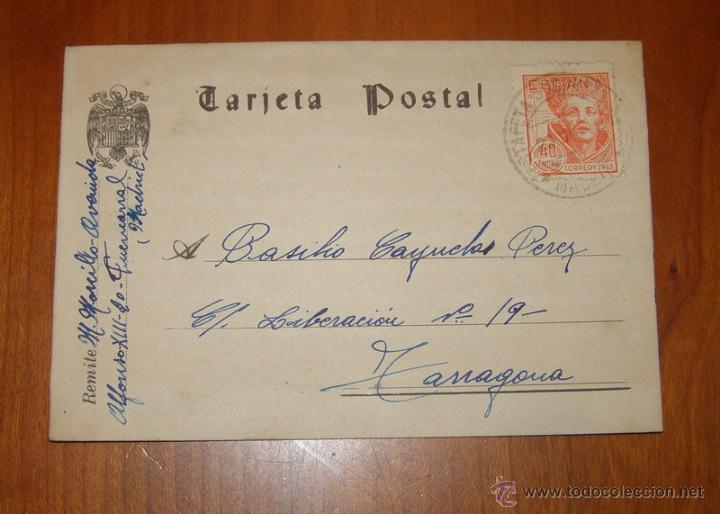 Tarjeta Postal
ESPAÑA
40
CENTIMOS
CORREOS 1945
ESTAFETA
MADRID
A Basilio Cayuelas Perez
C/. Liberación nº 19-
Tarragona
Remite M. Morcillo-Avenida
Alfonso XIII-20-Fuencarral
(Madrid)
© www.todocoleccion.net